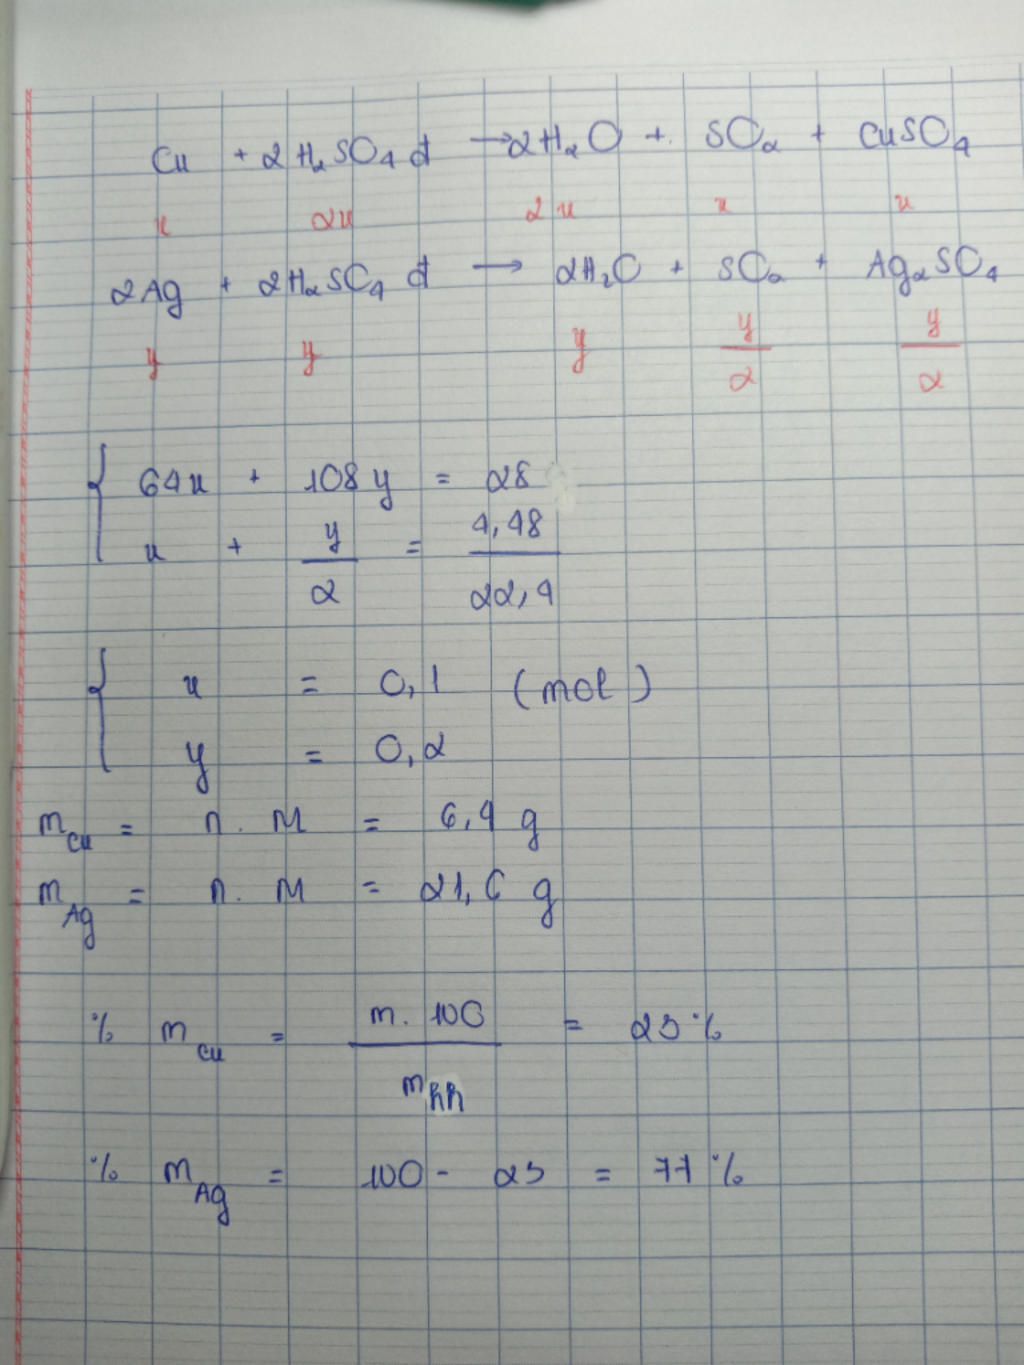 Cu + 2H₂SO₄ đ → 2H₂O + SO₂ + CuSO₄
x 2x 2x x x
2Ag + 2H₂SO₄ đ → 2H₂O + SO₂ + Ag₂SO₄
y y y y/2 y/2
{ 64x + 108y = 28
x + y/2 = 4,48/22,4
{ x = 0,1 (mol)
y = 0,2
m_Cu = n. M = 6,4 g
m_Ag = n. M = 21,6 g
% m_Cu = m. 100/m_hh = 23%
% m_Ag = 100 - 23 = 77%